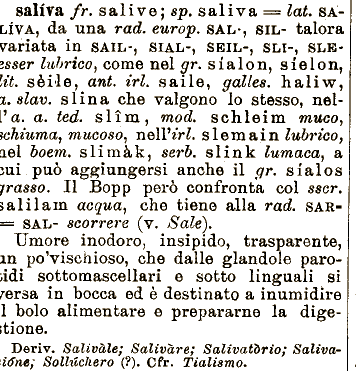 salíva fr. salive; sp. saliva = lat. SA-
LÍVA, da una rad. europ. SAL-, SIL- talora
variata in SAIL-, SIAL-, SEIL-, SLI-, SLE-
esser lubrico, come nel gr. síalon, síelon,
lit. sèile, ant. irl. saile, galles. haliw,
a. slav. slina che valgono lo stesso, nel-
l'a. a. ted. slîm, mod. schleim muco,
schiuma, mucoso, nell'irl. slemain lubrico,
nel boem. slimàk, serb. slink lumaca, a
cui può aggiungersi anche il gr. síalos
grasso. Il Bopp però confronta col sscr.
salilam acqua, che tiene alla rad. SAR-
= SAL- scorrere (v. Sale).
Umore inodoro, insipido, trasparente,
un po'vischioso, che dalle glandole paro-
tidi sottomascellari e sotto linguali si
versa in bocca ed è destinato a inumidire
il bolo alimentare e prepararne la dige-
stione.
Deriv. Salivàle; Salivàre; Salivatòrio; Saliva-
zióne; Sollúchero (?). Cfr. Tialismo.